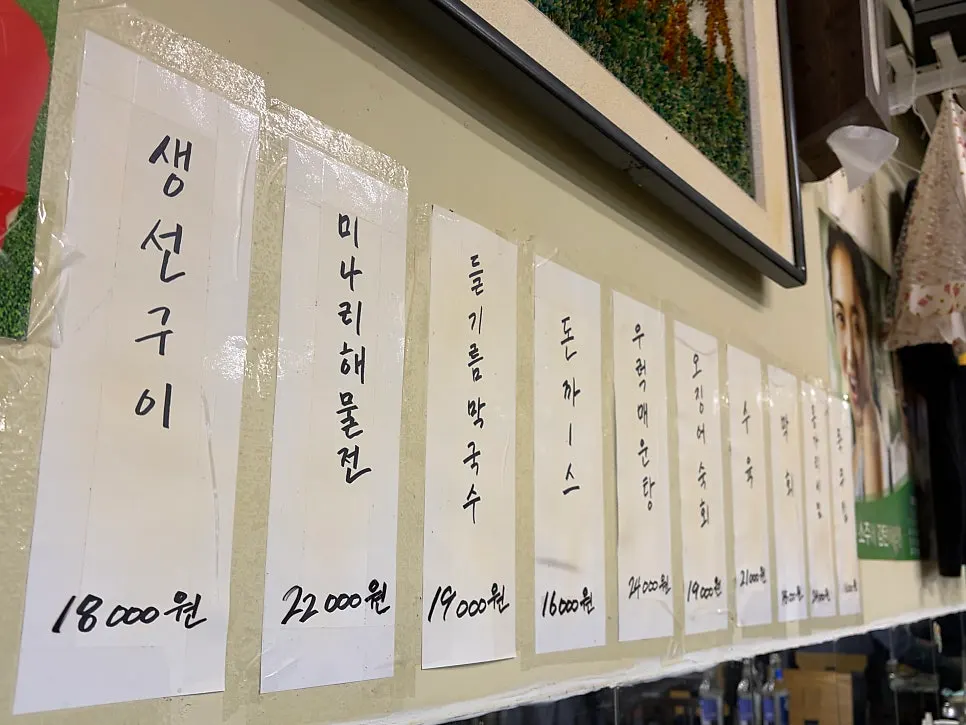 생선구이
18000원
미나리해물전
22000원
들기름막국수
19000원
돈까스
16000원
우럭매운탕
24000원
오징어숙회
19000원
수육
21000원
막회